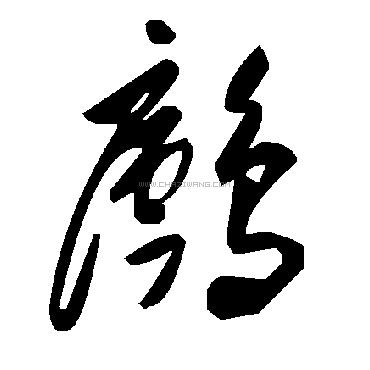 鷓
WWW.CHAZIWANG.COM